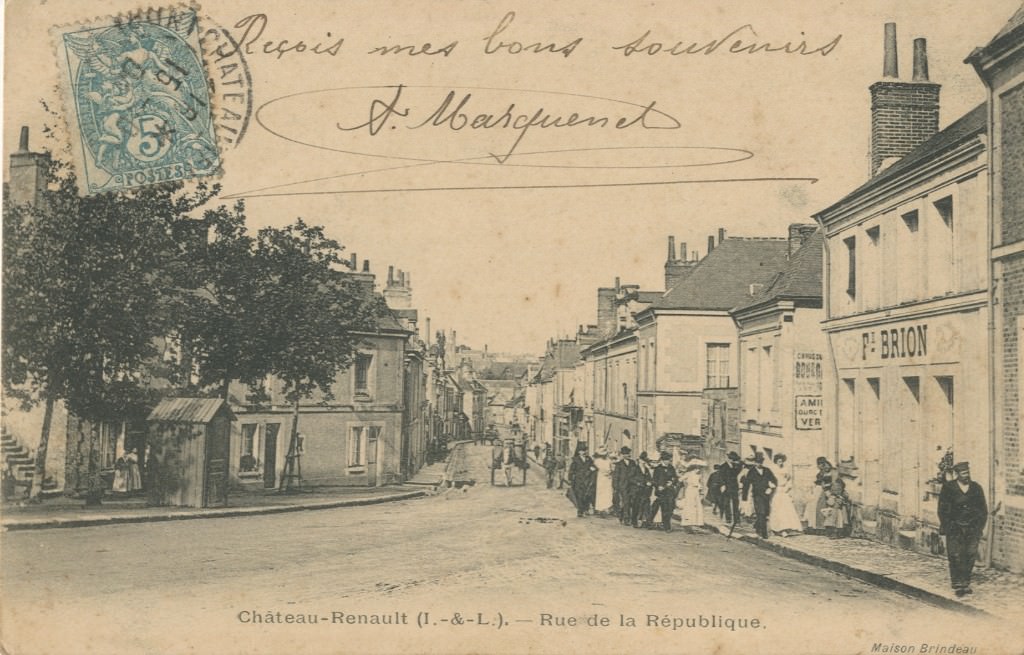 Reçois mes bons souvenirs
A. Marquenet
CHATEAU
15
5
POSTES
Fd BRION
AMI
VER
Château-Renault (I.-&-L.). — Rue de la République.
Maison Brindeau